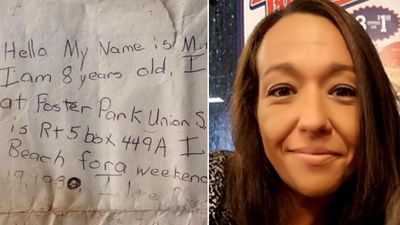 Hello My Name is M
I am 8 years old. I
at Foster Park Union S
is Rt 5 box 449A I
Beach for a weekend
I
3 $1